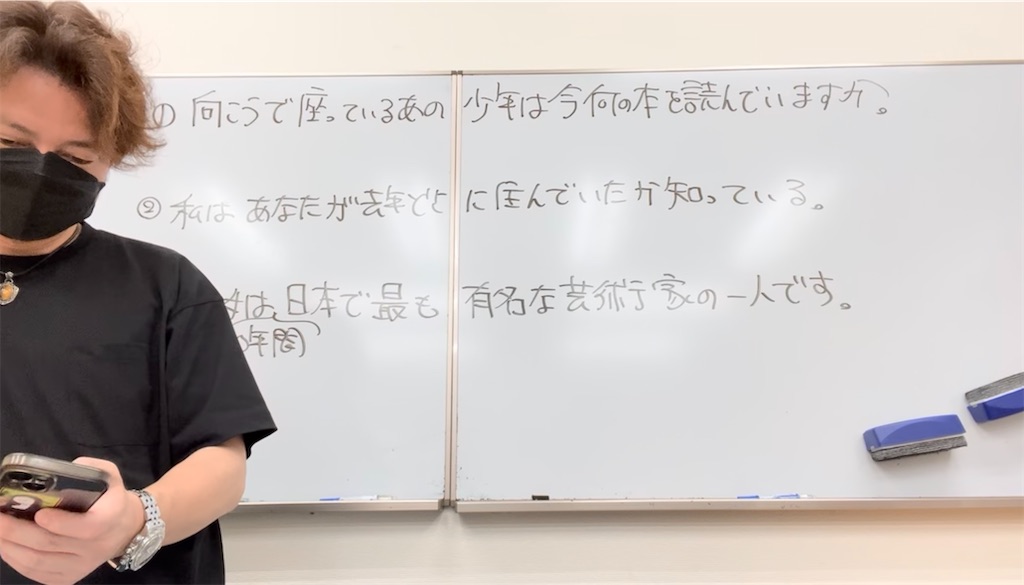 ① 向こうで座っているあの少年は今何の本を読んでいますか。
② 私はあなたが去年どこに住んでいたか知っている。
は、日本で最も有名な芸術家の一人です。
年間